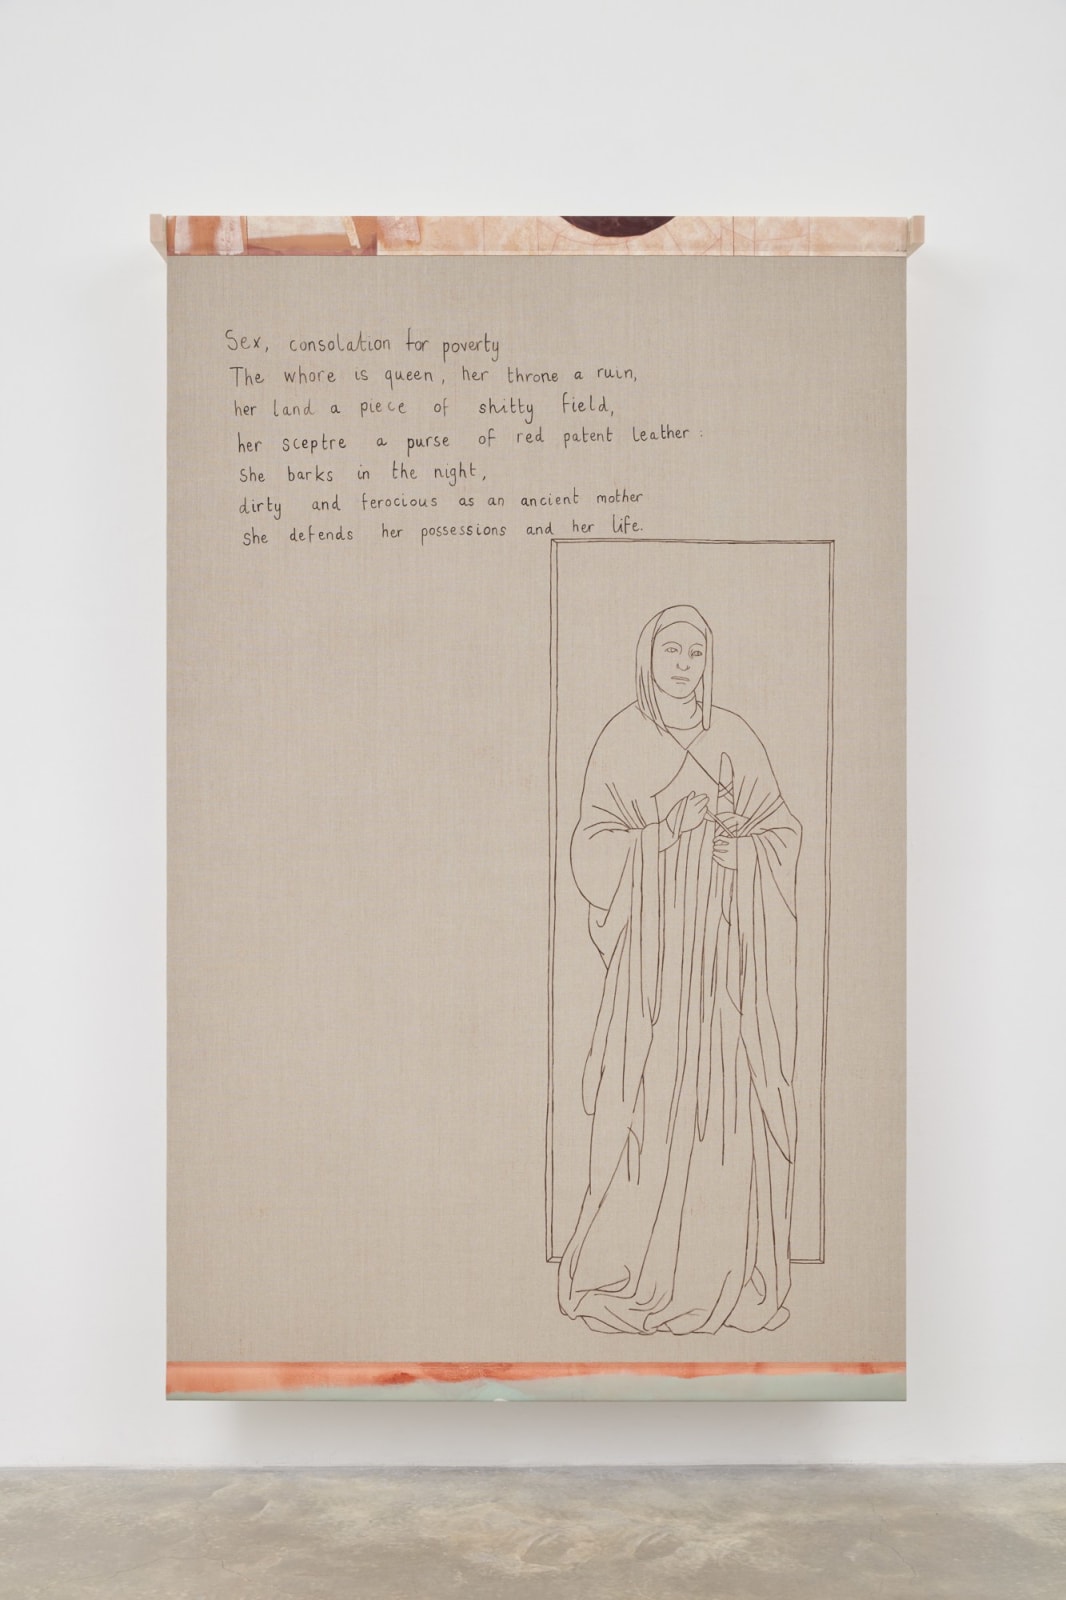 Sex, consolation for poverty
The whore is queen, her throne a ruin,
her land a piece of shitty field,
her sceptre a purse of red patent leather:
She barks in the night,
dirty and ferocious as an ancient mother
She defends her possessions and her life.